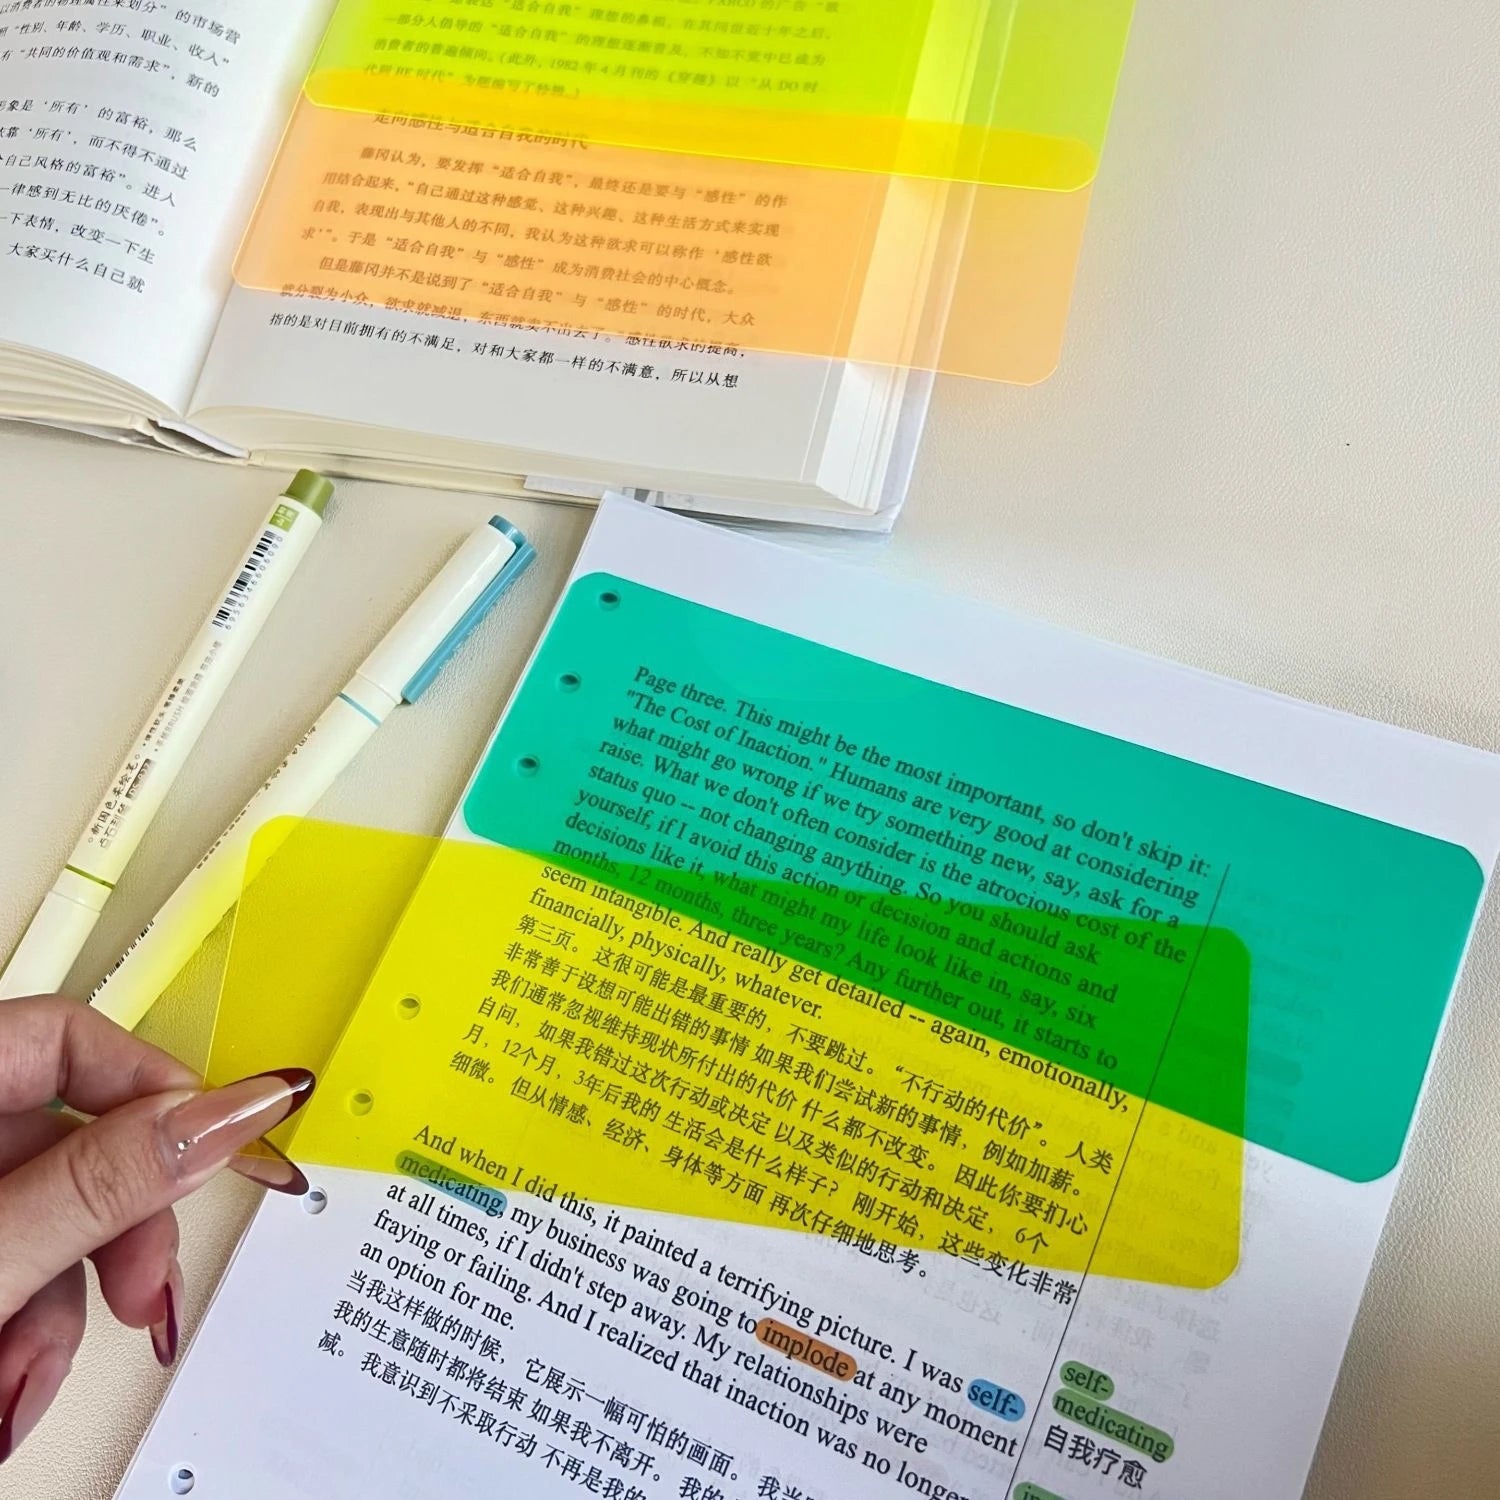 的市场营
“性别、年龄、学历、职业、收入”
有“共同的价值观和需求”，新的
象是‘所有’的富裕，那么
靠‘所有’，而不得不通过
自己风格的富裕”。进人
律感到无比的厌倦”。
一下表情，改变一下生
大家买什么自己就
一部分人倡导的“适合自我”的理想逐渐普及，不知不觉中已成为
消费者的普遍倾向。（此外，1982年4月刊的《穿越》以“从DO时
走向感性与适合自我的时代
藤冈认为，要发挥“适合自我”，最终还是要与“感性”的作
用结合起来。“自己通过这种感觉、这种兴趣、这种生活方式来实现
自我，表现出与其他人的不同，我认为这种欲求可以称作‘感性欲
求’”。于是“适合自我”与“感性”成为消费社会的中心概念。
但是藤冈并不是说到了“适合自我”与“感性”的时代，大众
就分裂为小众，欲求就减退，东西就卖不出去了。“感性欲求的提高，
指的是对目前拥有的不满足，对和大家都一样的不满意，所以从想
6956346606090
Page three. This might be the most important, so don't skip it:
"The Cost of Inaction." Humans are very good at considering
what might go wrong if we try something new, say, ask for a
raise. What we don't often consider is the atrocious cost of the
status quo -- not changing anything. So you should ask
yourself, if I avoid this action or decision and actions and
decisions like it, what might my life look like in, say, six
months, 12 months, three years? Any further out, it starts to
seem intangible. And really get detailed -- again, emotionally,
financially, physically, whatever.
第三页。 这很可能是最重要的，不要跳过。“不行动的代价”。 人类
非常善于设想可能出错的事情 如果我们尝试新的事情，例如加薪。
我们通常忽视维持现状所付出的代价 什么都不改变。 因此你要扪心
自问， 如果我错过这次行动或决定 以及类似的行动和决定， 6个
月，12个月，3年后我的 生活会是什么样子？ 刚开始，这些变化非常
细微。 但从情感、经济、身体等方面 再次仔细地思考。
And when I did this, it painted a terrifying picture. I was self-
medicating, my business was going to implode at any moment
at all times, if I didn't step away. My relationships were
fraying or failing. And I realized that inaction was no longer
an option for me.
当我这样做的时候， 它展示一幅可怕的画面。 我当
我的生意随时都将结束 如果我不离开。 我的
减。 我意识到不采取行动 不再是我的
self-
medicating
自我疗愈